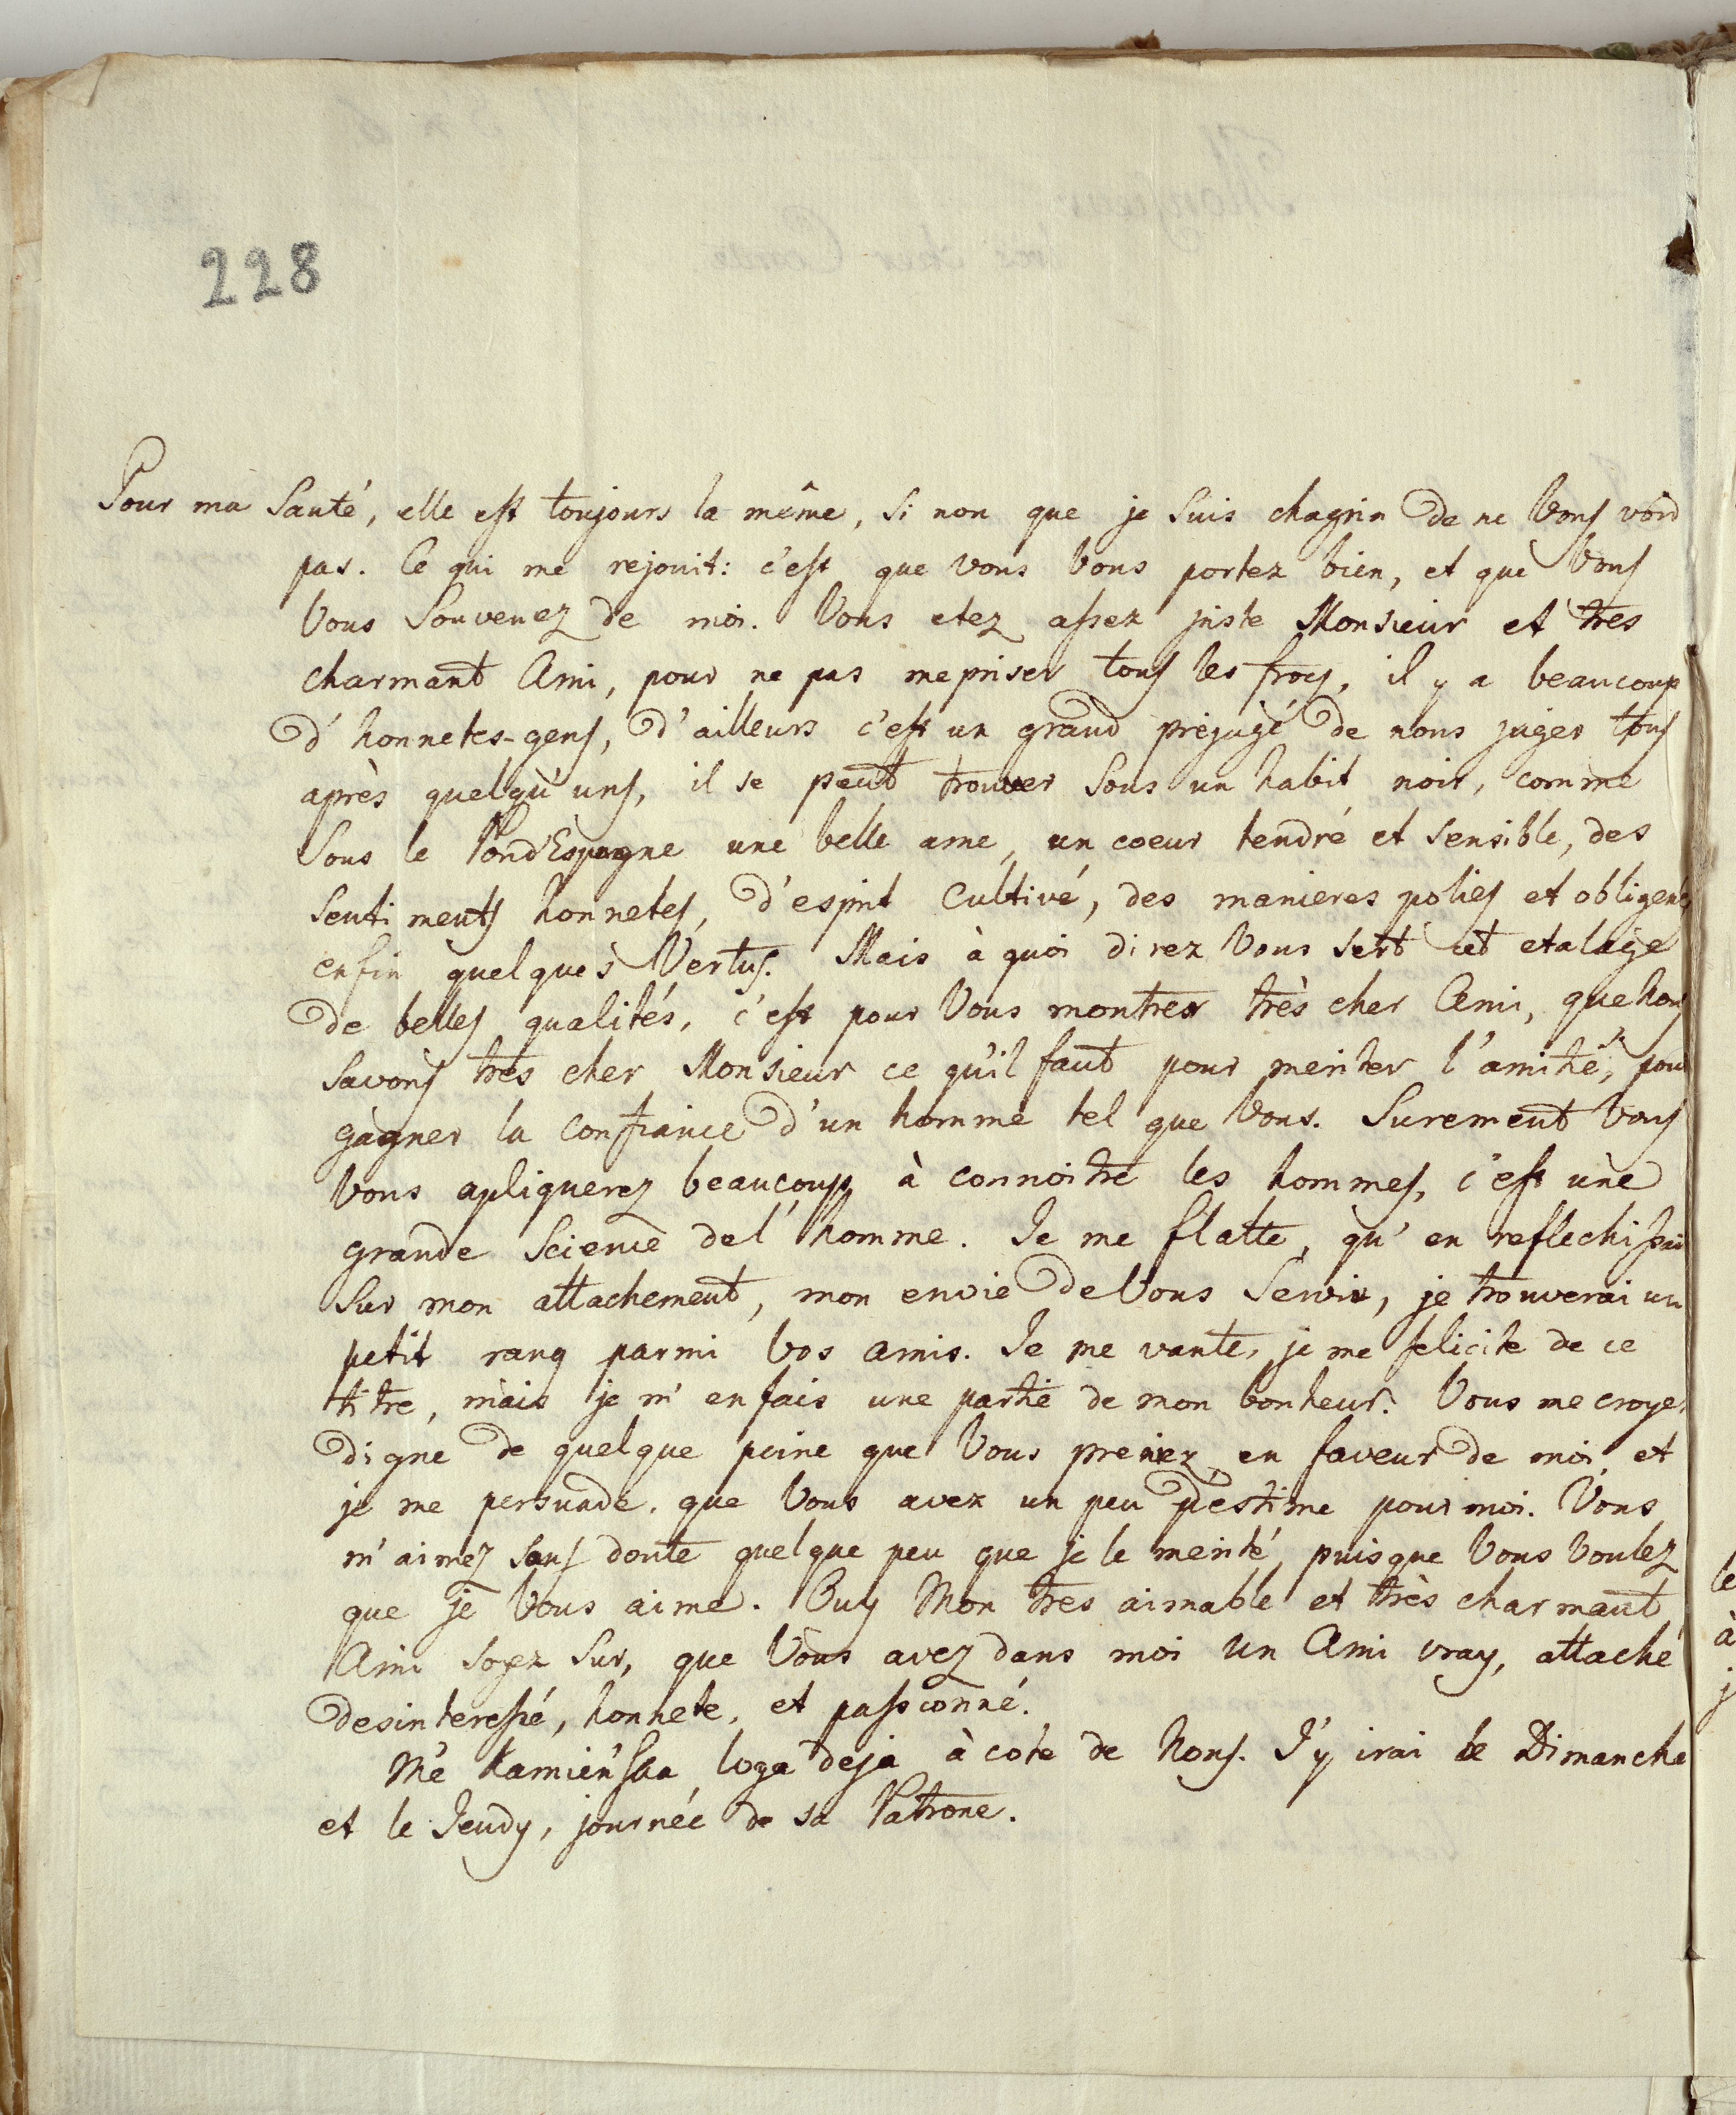 228
Pour ma Santé, elle est toujours la même, si non que je suis chagrin de ne Vous voir
pas. Ce qui me rejouit: c'est que vous Vous portez bien, et que Vous
Vous Souvenez de moi. Vous etez assez juste Monsieur et tres
charmant Ami, pour ne pas mepriser tous les frocs, il y a beaucoup
d'honnetes-gens, d'ailleurs c'est un grand prejugé de nous juger tous
après quelqu'uns, il se peut trouver Sous un habit noir, comme
Sous le Pond'Espagne une belle ame, un coeur tendre et sensible, des
Sentiments honnetes, d'esprit cultivé, des manieres polies et obligent
enfin quelques Vertus. Mais à quoi direz Vous sert cet etalage
de belles qualités, c'est pour Vous montrer très cher Ami, que nous
Savons très cher Monsieur ce qu'il faut pour meriter l'amitié, pour
gagner la confiance d'un homme tel que Vous. Surement Vous
Vous apliquerez beaucoup à connoitre les hommes, c'est une
grande Science de l'homme. Je me flatte, qu'en reflechissai
Sur mon attachement, mon envie de Vous Servir, je trouverai un
petit rang parmi Vos amis. Je me vante, je me felicite de ce
titre, mais je m'en fais une partie de mon bonheur. Vous me croyez
digne de quelque peine que Vous preniez en faveur de moi et
je me persuade, que Vous avez un peu d'estime pour moi. Vous
m'aimez Sans doute quelque peu que je le merité, puisque Vous Voulez
que je Vous aime. Ouy Mon tres aimable et très charmant
Ami soyez Sur, que Vous avez dans moi un Ami vray, attaché
desinteressé, honnete, et passionné.
Me Kamieńska loge deja à coté de Nous. J'y irai le Dimanche
et le Jeudy, journée de sa Patrone.
le
à
j